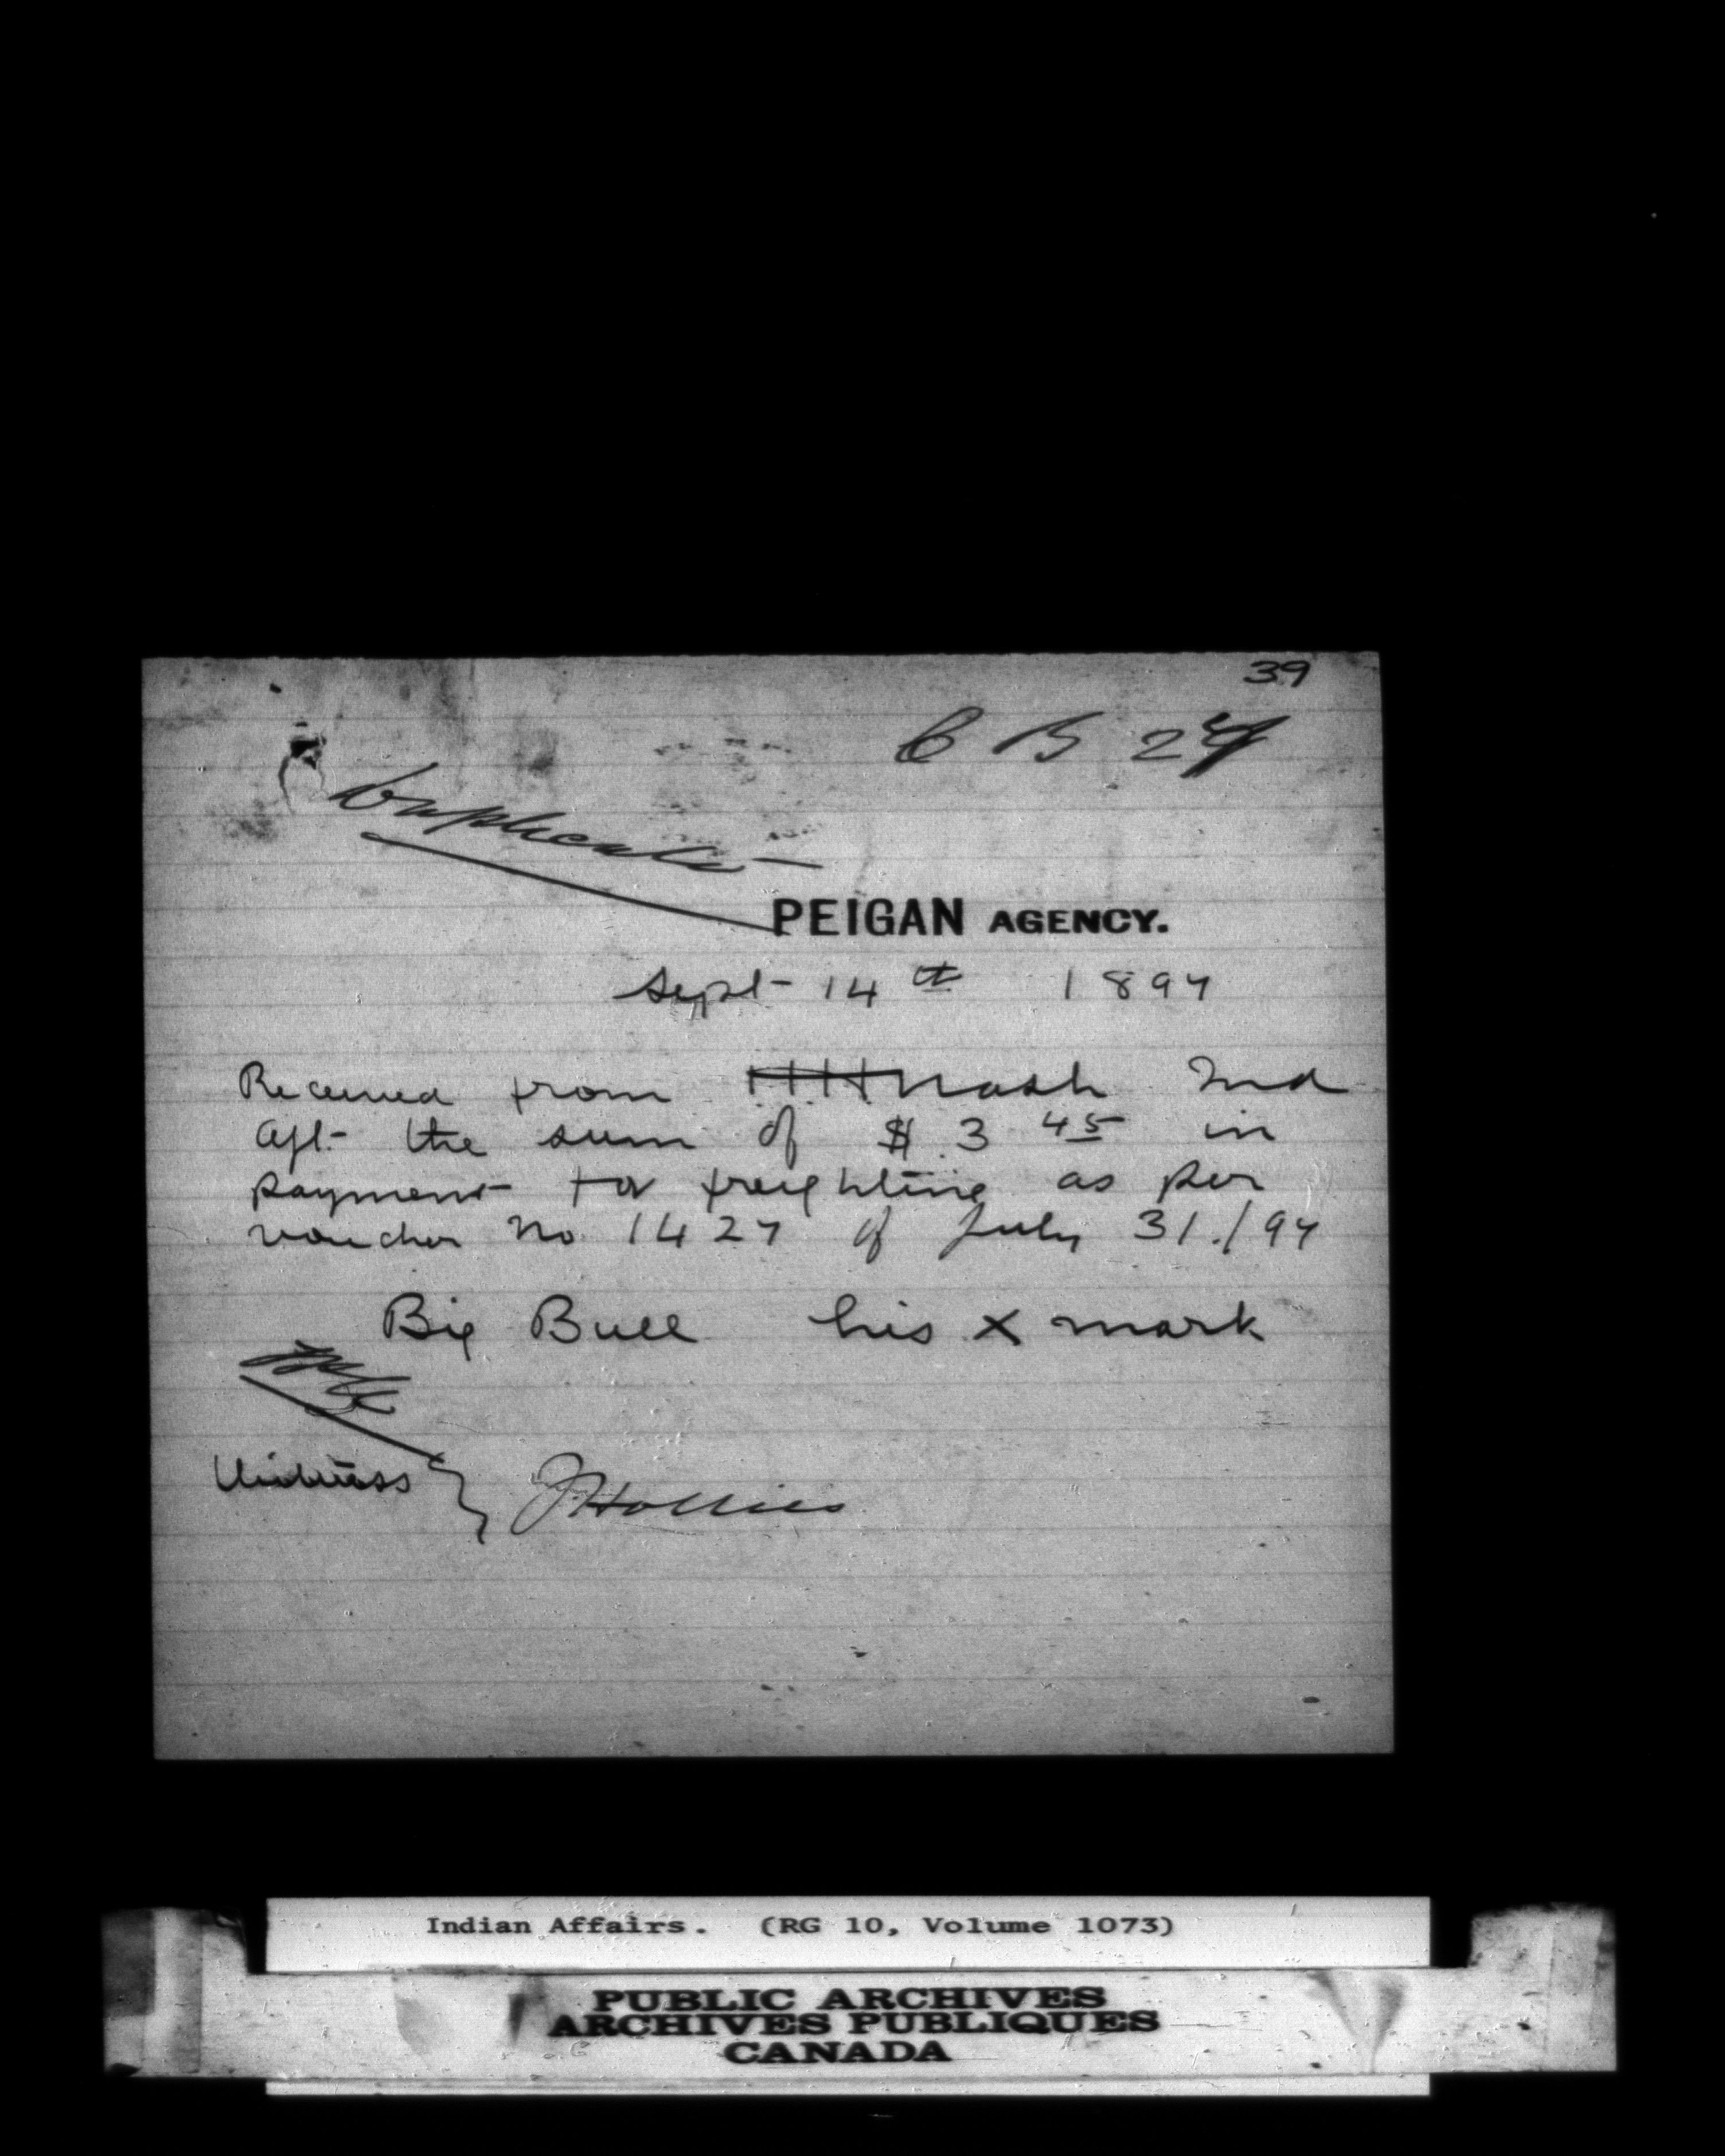 39
C B 24
Duplicate
PEIGAN AGENCY.
Sept 14th 1897
Received from HHNash Ind
Agt the sum of $3 45 in
payment for freighting as per
voucher No 1427 of July 31./97
Big Bull his X mark
Witness } J Hollies
Indian Affairs. (RG 10, Volume 1073)
PUBLIC ARCHIVES
ARCHIVES PUBLIQUES
CANADA